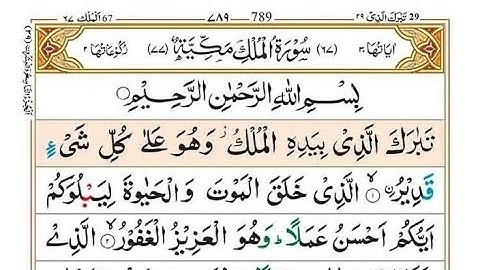 الملك ٦٧ 67 ٧٨٩ 789 تبارك الذي ٢٩ 29
اٰيَاتُهَا ٣٠ (٦٧) سُوْرَةُ الْمُلْكِ مَكِّيَّةٌ (٧٧) رُكُوْعَاتُهَا ٢
بِسْمِ اللّٰهِ الرَّحْمٰنِ الرَّحِيْمِ
تَبٰرَكَ الَّذِىْ بِيَدِهِ الْمُلْكُ ۫ وَهُوَ عَلٰى كُلِّ شَىْءٍ
قَدِيْرٌ ۙ﴿۱﴾ الَّذِىْ خَلَقَ الْمَوْتَ وَالْحَيٰوةَ لِيَبْلُوَكُمْ
اَيُّكُمْ اَحْسَنُ عَمَلًا ؕ وَهُوَ الْعَزِيْزُ الْغَفُوْرُ ۙ﴿۲﴾ الَّذِىْ